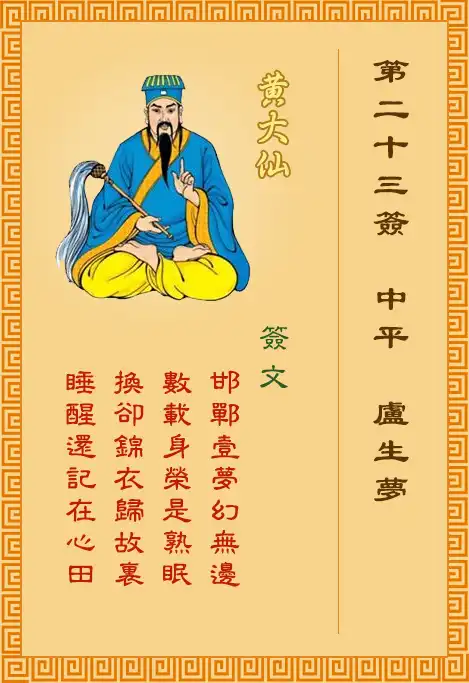 第二十三簽 中平 盧生夢
黃大仙
簽文
邯鄲壹夢幻無邊
數載身榮是熟眠
換卻錦衣歸故裏
睡醒還記在心田